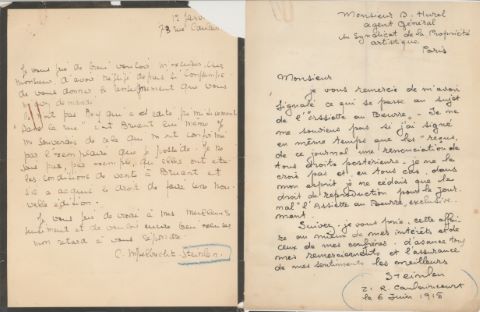 12 Janv
73 rue Caulain
Je vous prie de bien vouloir m'excuser cher
Monsieur d'avoir différé depuis si longtemps
de vous donner le renseignement que vous
m'avez demandé.
C'est pas Rey qui a édité primitivement
Dans la rue, c'est Bruant lui même. Je
m'en souvenais et cela m'a été confirmé
par l'exemplaire que je possède. Je ne
sais pas, par exemple, quelles ont été
les conditions de vente à Bruant et
s'il a acquis le droit de faire une nou-
velle édition.
Je vous prie de croire à mes meilleurs
sentiments et de vouloir encore bien excuser
mon retard à vous répondre.
Steinlen.
Monsieur D. Hurel
agent Général
du Syndicat de la Propriété
artistique
Paris
Monsieur
je vous remercie de m'avoir
signalé ce qui se passe au sujet
de l'assiette au Beurre. Je ne
me souviens pas si j'ai signé
en même temps que les reçus,
de ce journal une renonciation de
tous droits postérieurs, je ne le
crois pas et, en tous cas, dans
mon esprit je ne cédais que le
droit de reproduction pour le jour-
nal "l'Assiette au Beurre, exclusive-
ment.
Suivez, je vous prie, cette affai-
re au mieux de mes intérêts et de
ceux de mes confrères. d'avance tous
mes remerciements et l'assurance
de mes sentiments les meilleurs
Steinlen
21 R. Caulaincourt
le 6 juin 1915